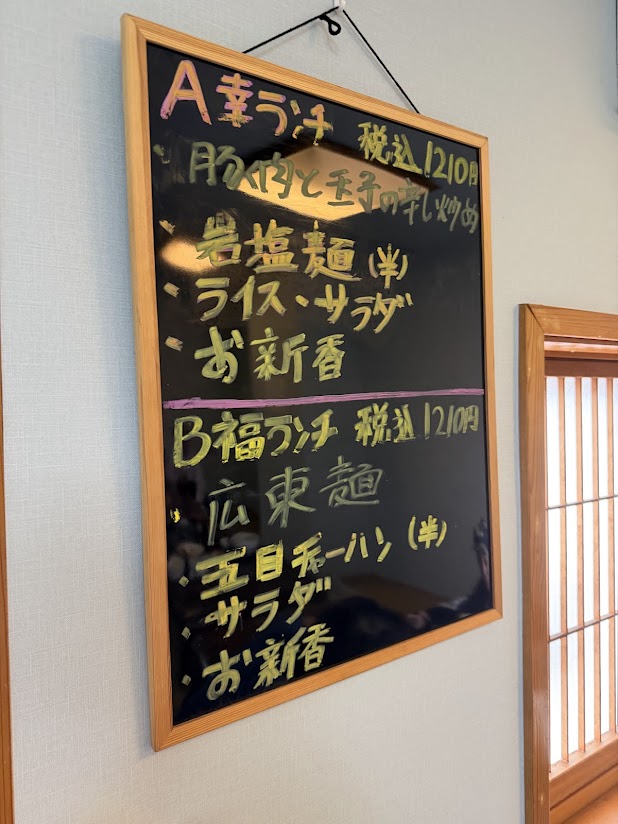 A 幸ランチ 税込1210円
・豚肉と玉子の辛し炒め
・岩塩麺(半)
・ライス・サラダ
・お新香
B 福ランチ 税込1210円
・広東麺
・五目チャーハン(半)
・サラダ
・お新香